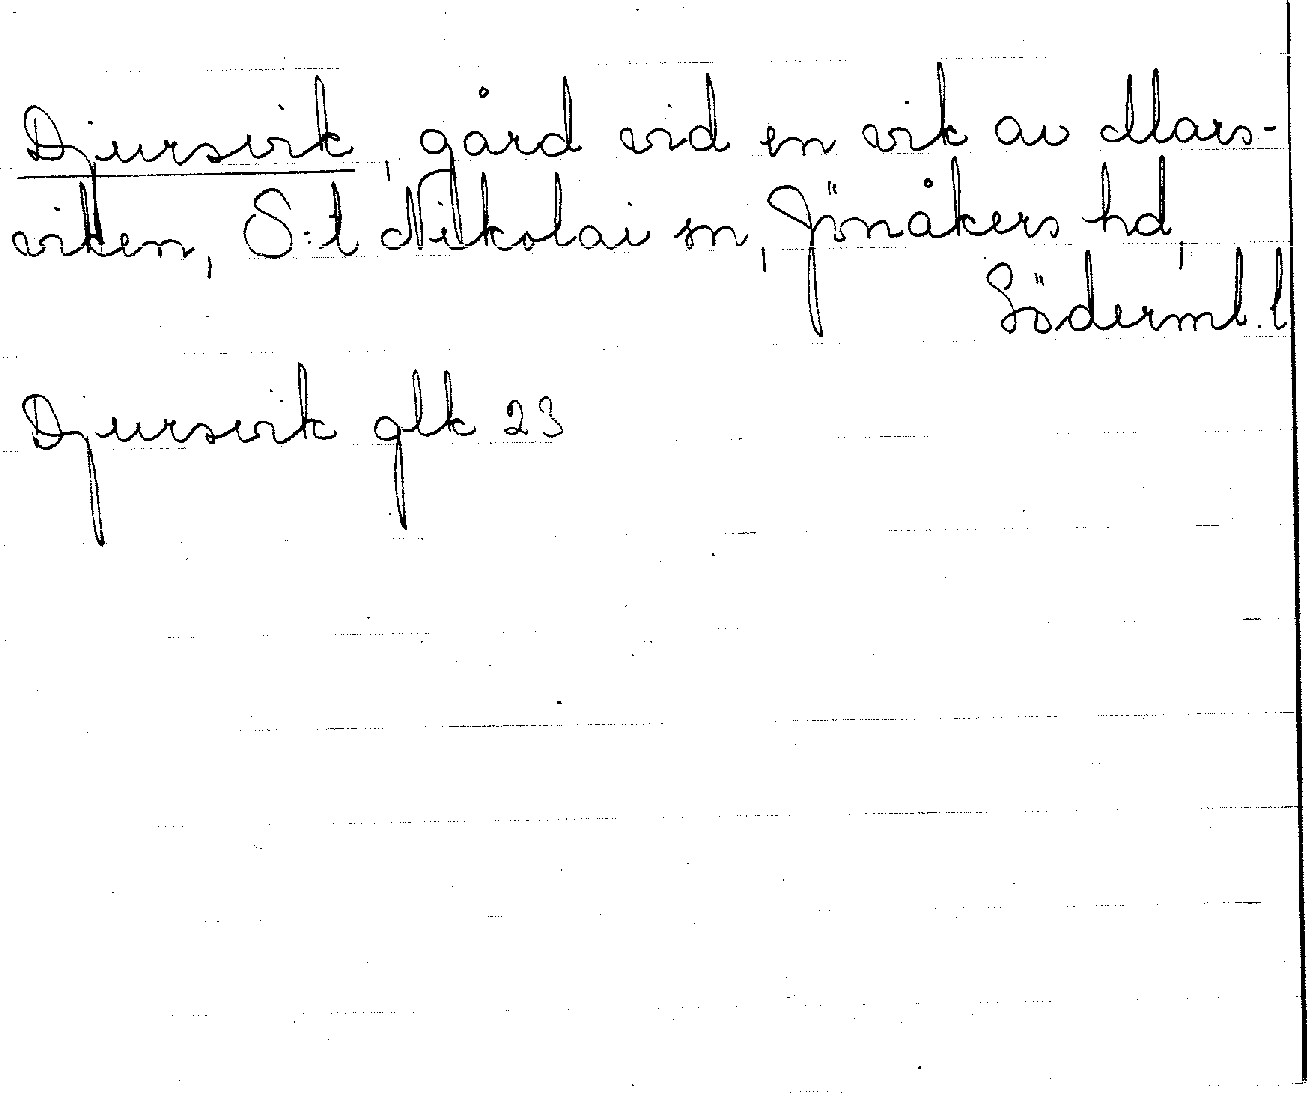 Djursvik, gård vid en vik av Mars-
viken, S:t Nikolai sn, Jönåkers hd,
Söderml. l
Djursvik glk 23